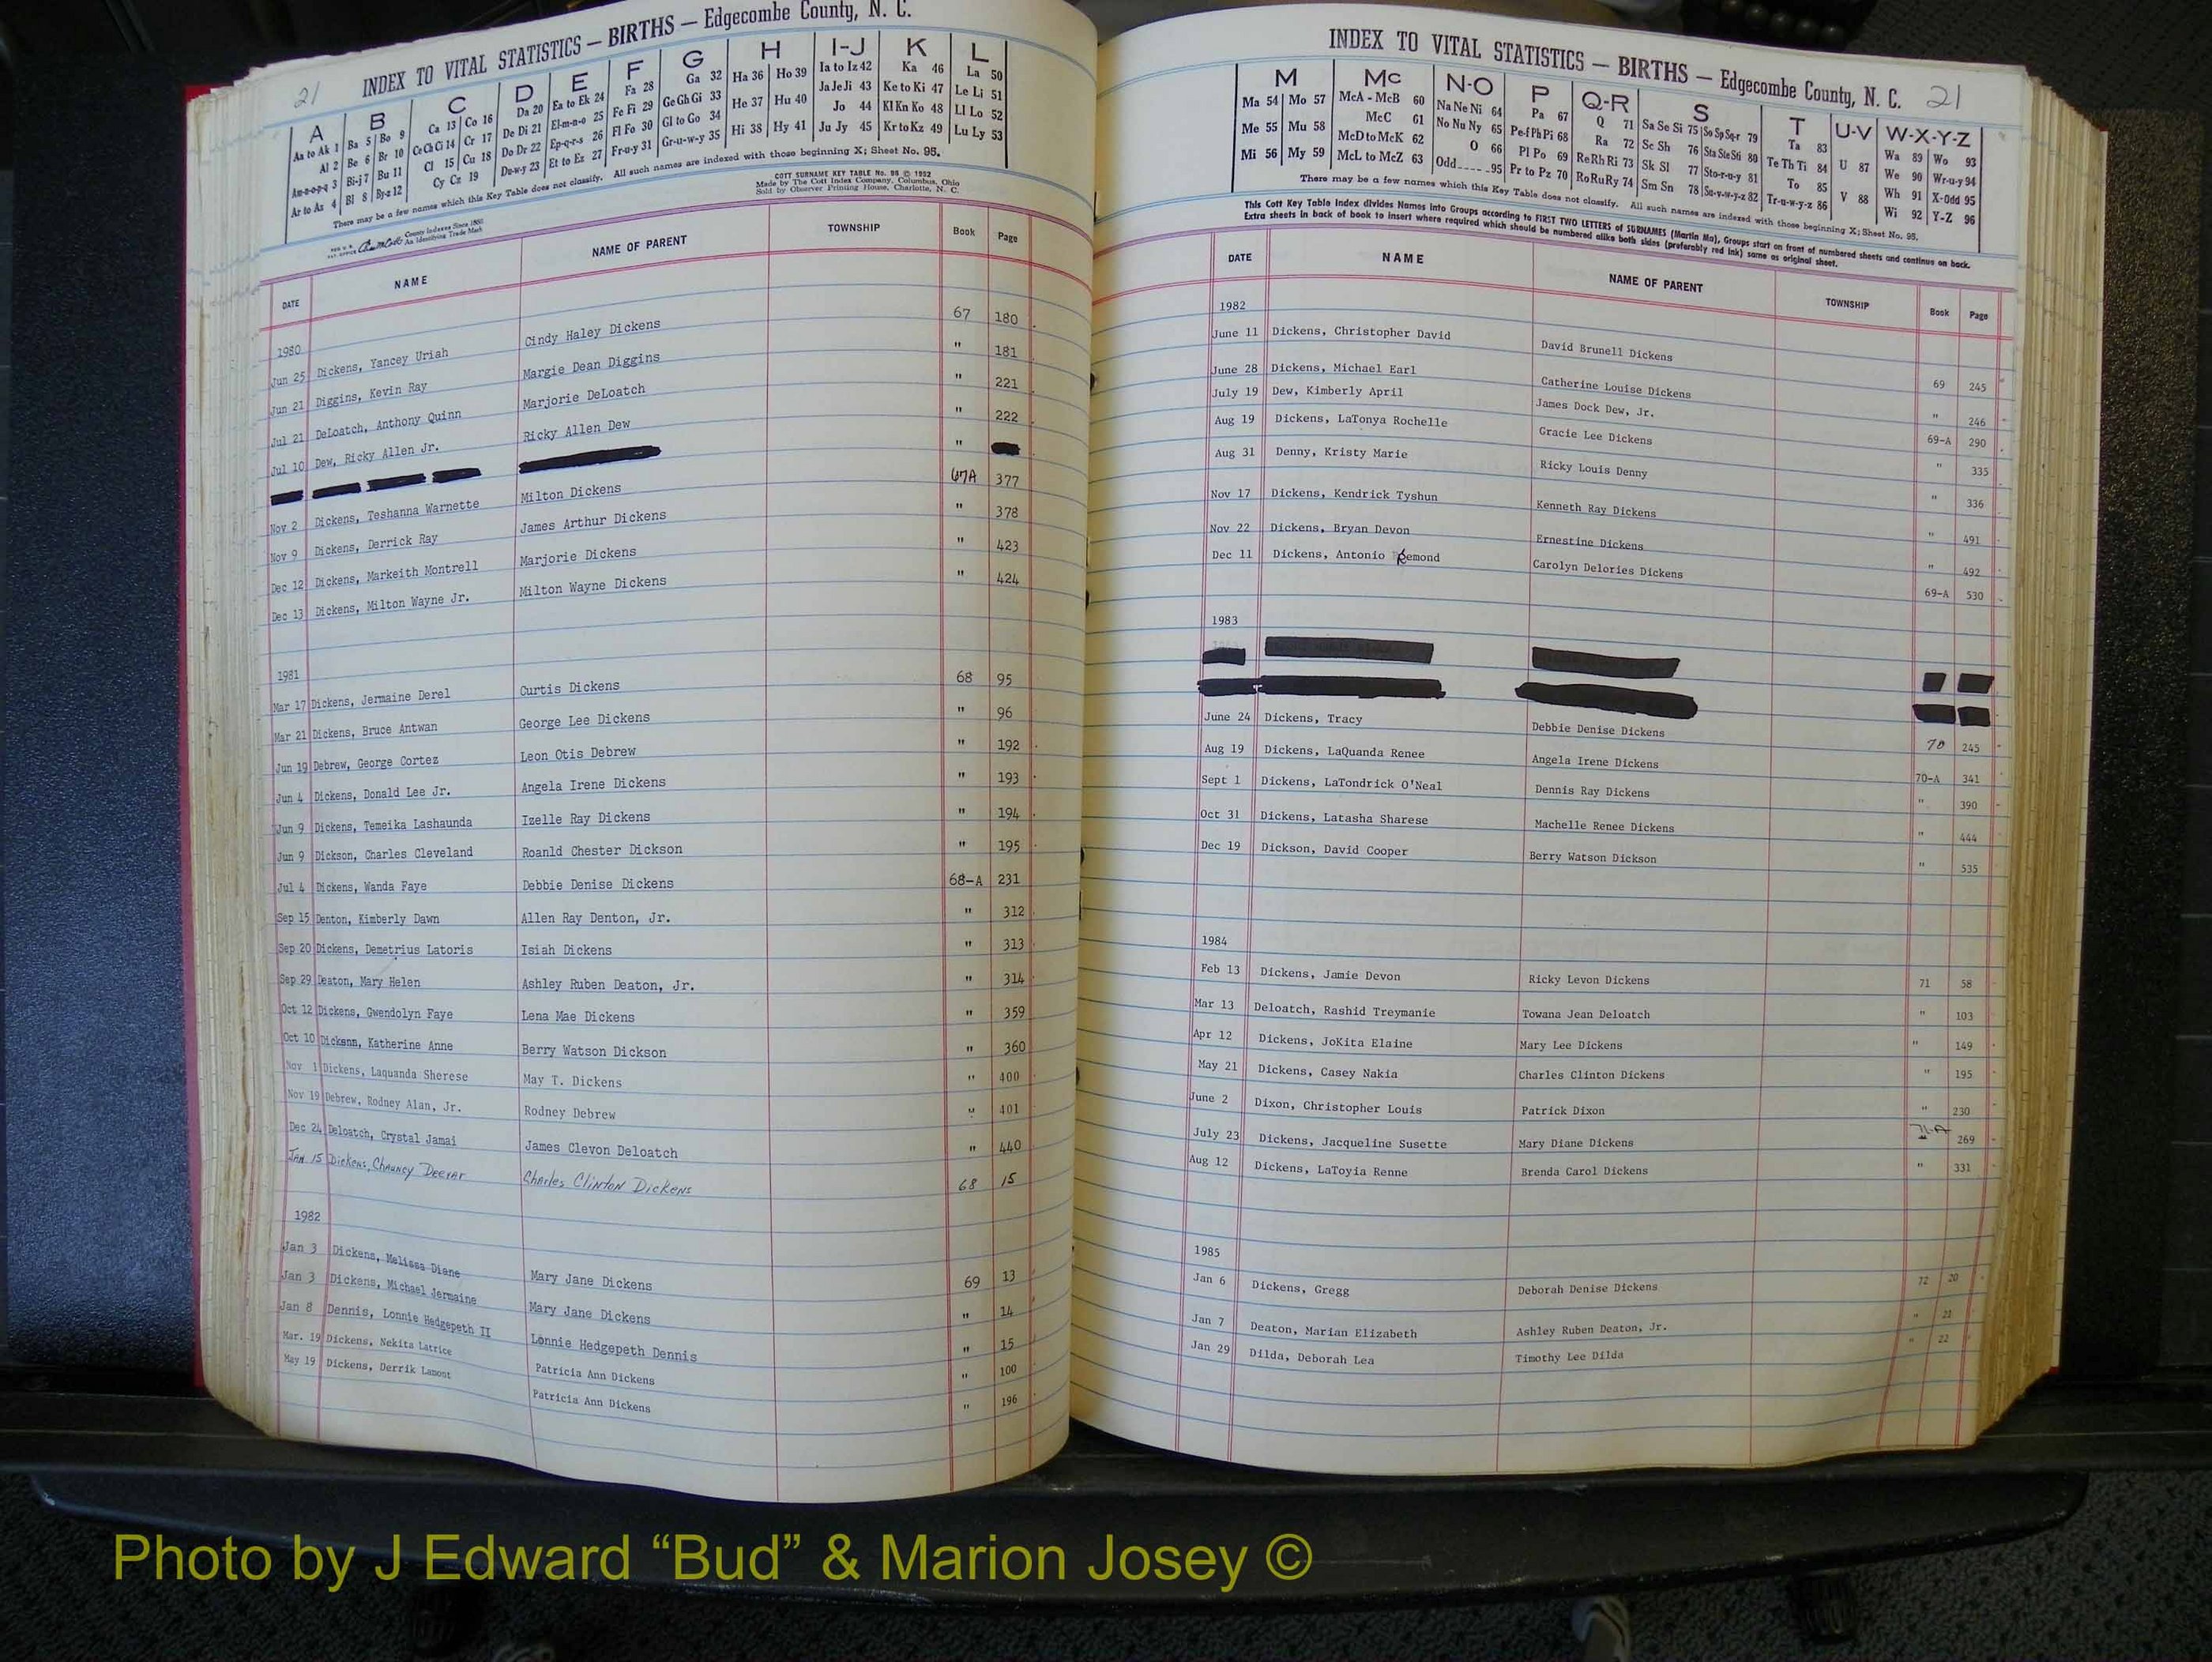 21 INDEX TO VITAL STATISTICS — BIRTHS — Edgecombe County, N. C.
A B C D E F G H I-J K L
Aa to Ak 1 Ba 5 Bo 9 Ca 13 Co 16 Da 20 Ea to Ek 24 Fa 28 Ga 32 Ha 36 Ho 39 Ia to Iz 42 Ka 46 La 50
Al 2 Be 6 Br 10 Ce Ch Ci 14 Cr 17 De Di 21 El-m-n-o 25 Fe Fi 29 Ge Gh Gi 33 He 37 Hu 40 Ja Je Ji 43 Ke to Ki 47 Le Li 51
Am-n-o-p-q 3 Bi-j 7 Bu 11 Cl 15 Cu 18 Do Dr 22 Ep-q-r-s 26 Fl Fo 30 Gl to Go 34 Hi 38 Hy 41 Jo 44 Kl Kn Ko 48 Ll Lo 52
Ar to Az 4 Bl 8 By-z 12 Cy Cz 19 Du-w-y 23 Et to Ez 27 Fr-u-y 31 Gr-u-w-y 35 Ju Jy 45 Kr to Kz 49 Lu Ly 53
There may be a few names which this Key Table does not classify. All such names are indexed with those beginning X; Sheet No. 95.
COTT SURNAME KEY TABLE No. 96 © 1952
Made by The Cott Index Company, Columbus, Ohio
Sold by Observer Printing House, Charlotte, N. C.
County Indexes Since 1888
An Identifying Trade Mark
DATE NAME NAME OF PARENT TOWNSHIP Book Page
1980
Jun 25 Dickens, Yancey Uriah Cindy Haley Dickens 67 180
Jun 21 Diggins, Kevin Ray Margie Dean Diggins " 181
Jul 21 DeLoatch, Anthony Quinn Marjorie DeLoatch " 221
Jul 10 Dew, Ricky Allen Jr. Ricky Allen Dew " 222
"
Nov 2 Dickens, Teshanna Warnette Milton Dickens 67A 377
Nov 9 Dickens, Derrick Ray James Arthur Dickens " 378
Dec 12 Dickens, Markeith Montrell Marjorie Dickens " 423
Dec 13 Dickens, Milton Wayne Jr. Milton Wayne Dickens " 424
1981
Mar 17 Dickens, Jermaine Derel Curtis Dickens 68 95
Mar 21 Dickens, Bruce Antwan George Lee Dickens " 96
Jun 19 Debrew, George Cortez Leon Otis Debrew " 192
Jun 4 Dickens, Donald Lee Jr. Angela Irene Dickens " 193
Jun 9 Dickens, Temeika Lashaunda Izelle Ray Dickens " 194
Jun 9 Dickson, Charles Cleveland Roanld Chester Dickson " 195
Jul 4 Dickens, Wanda Faye Debbie Denise Dickens 68-A 231
Sep 15 Denton, Kimberly Dawn Allen Ray Denton, Jr. " 312
Sep 20 Dickens, Demetrius Latoris Isiah Dickens " 313
Sep 29 Deaton, Mary Helen Ashley Ruben Deaton, Jr. " 314
Oct 12 Dickens, Gwendolyn Faye Lena Mae Dickens " 359
Oct 10 Katherine Anne Berry Watson Dickson " 360
Nov 1 Dickens, Laquanda Sherese May T. Dickens " 400
Nov 19 Debrew, Rodney Alan, Jr. Rodney Debrew " 401
Dec 24 Deloatch, Crystal Jamai James Clevon Deloatch " 440
Jan 15 Dickens, Chauncy Charles Clinton Dickens 68 15
1982
Jan 3 Dickens, Melissa Diane Mary Jane Dickens 69 13
Jan 3 Dickens, Michael Jermaine Mary Jane Dickens " 14
Jan 8 Dennis, Lonnie Hedgepeth II Lonnie Hedgepeth Dennis " 15
Mar. 19 Dickens, Nekita Latrice Patricia Ann Dickens " 100
May 19 Dickens, Derrik Lamont Patricia Ann Dickens " 196
INDEX TO VITAL STATISTICS — BIRTHS — Edgecombe County, N. C. 21
M Mc N-O P Q-R S T U-V W-X-Y-Z
Ma 54 Mo 57 McA - McB 60 Na Ne Ni 64 Pa 67 Q 71 Sa Se Si 75 So Sp Sq-r 79 Ta 83 U 87 Wa 89 Wo 93
Me 55 Mu 58 McC 61 No Nu Ny 65 Pe-f Ph Pi 68 Ra 72 Sc Sh 76 Sta Ste Sti 80 Te Th Ti 84 V 88 We 90 Wr-u-y 94
Mi 56 My 59 McD to McK 62 O 66 Pl Po 69 Re Rh Ri 73 Sk Sl 77 Sto-r-u-y 81 To 85 Wh 91 X-Odd 95
McL to McZ 63 Odd -----95 Pr to Pz 70 Ro Ru Ry 74 Sm Sn 78 Su-v-w-y-z 82 Tr-u-w-y-z 86 Wi 92 Y-Z 96
There may be a few names which this Key Table does not classify. All such names are indexed with those beginning X; Sheet No. 95.
This Cott Key Table Index divides Names into Groups according to FIRST TWO LETTERS of SURNAMES (Martin Ma), Groups start on front of numbered sheets and continue on back.
Extra sheets in back of book to insert where required which should be numbered alike both sides (preferably red ink) same as original sheet.
DATE NAME NAME OF PARENT TOWNSHIP Book Page
1982
June 11 Dickens, Christopher David David Brunell Dickens 69 245
June 28 Dickens, Michael Earl Catherine Louise Dickens " 246
July 19 Dew, Kimberly April James Dock Dew, Jr. 69-A 290
Aug 19 Dickens, LaTonya Rochelle Gracie Lee Dickens " 335
Aug 31 Denny, Kristy Marie Ricky Louis Denny " 336
Nov 17 Dickens, Kendrick Tyshun Kenneth Ray Dickens " 491
Nov 22 Dickens, Bryan Devon Ernestine Dickens " 492
Dec 11 Dickens, Antonio Carolyn Delories Dickens 69-A 530
1983
June 24 Dickens, Tracy Debbie Denise Dickens 70 245
Aug 19 Dickens, LaQuanda Renee Angela Irene Dickens 70-A 341
Sept 1 Dickens, LaTondrick O'Neal Dennis Ray Dickens " 390
Oct 31 Dickens, Latasha Sharese Machelle Renee Dickens " 444
Dec 19 Dickson, David Cooper Berry Watson Dickson " 535
1984
Feb 13 Dickens, Jamie Devon Ricky Levon Dickens 71 58
Mar 13 Deloatch, Rashid Treymanie Towana Jean Deloatch " 103
Apr 12 Dickens, JoKita Elaine Mary Lee Dickens " 149
May 21 Dickens, Casey Nakia Charles Clinton Dickens " 195
June 2 Dixon, Christopher Louis Patrick Dixon " 230
July 23 Dickens, Jacqueline Susette Mary Diane Dickens 71-A 269
Aug 12 Dickens, LaToyia Renne Brenda Carol Dickens " 331
1985
Jan 6 Dickens, Gregg Deborah Denise Dickens 72 20
Jan 7 Deaton, Marian Elizabeth Ashley Ruben Deaton, Jr. " 21
Jan 29 Dilda, Deborah Lea Timothy Lee Dilda " 22
Photo by J Edward “Bud” & Marion Josey ©